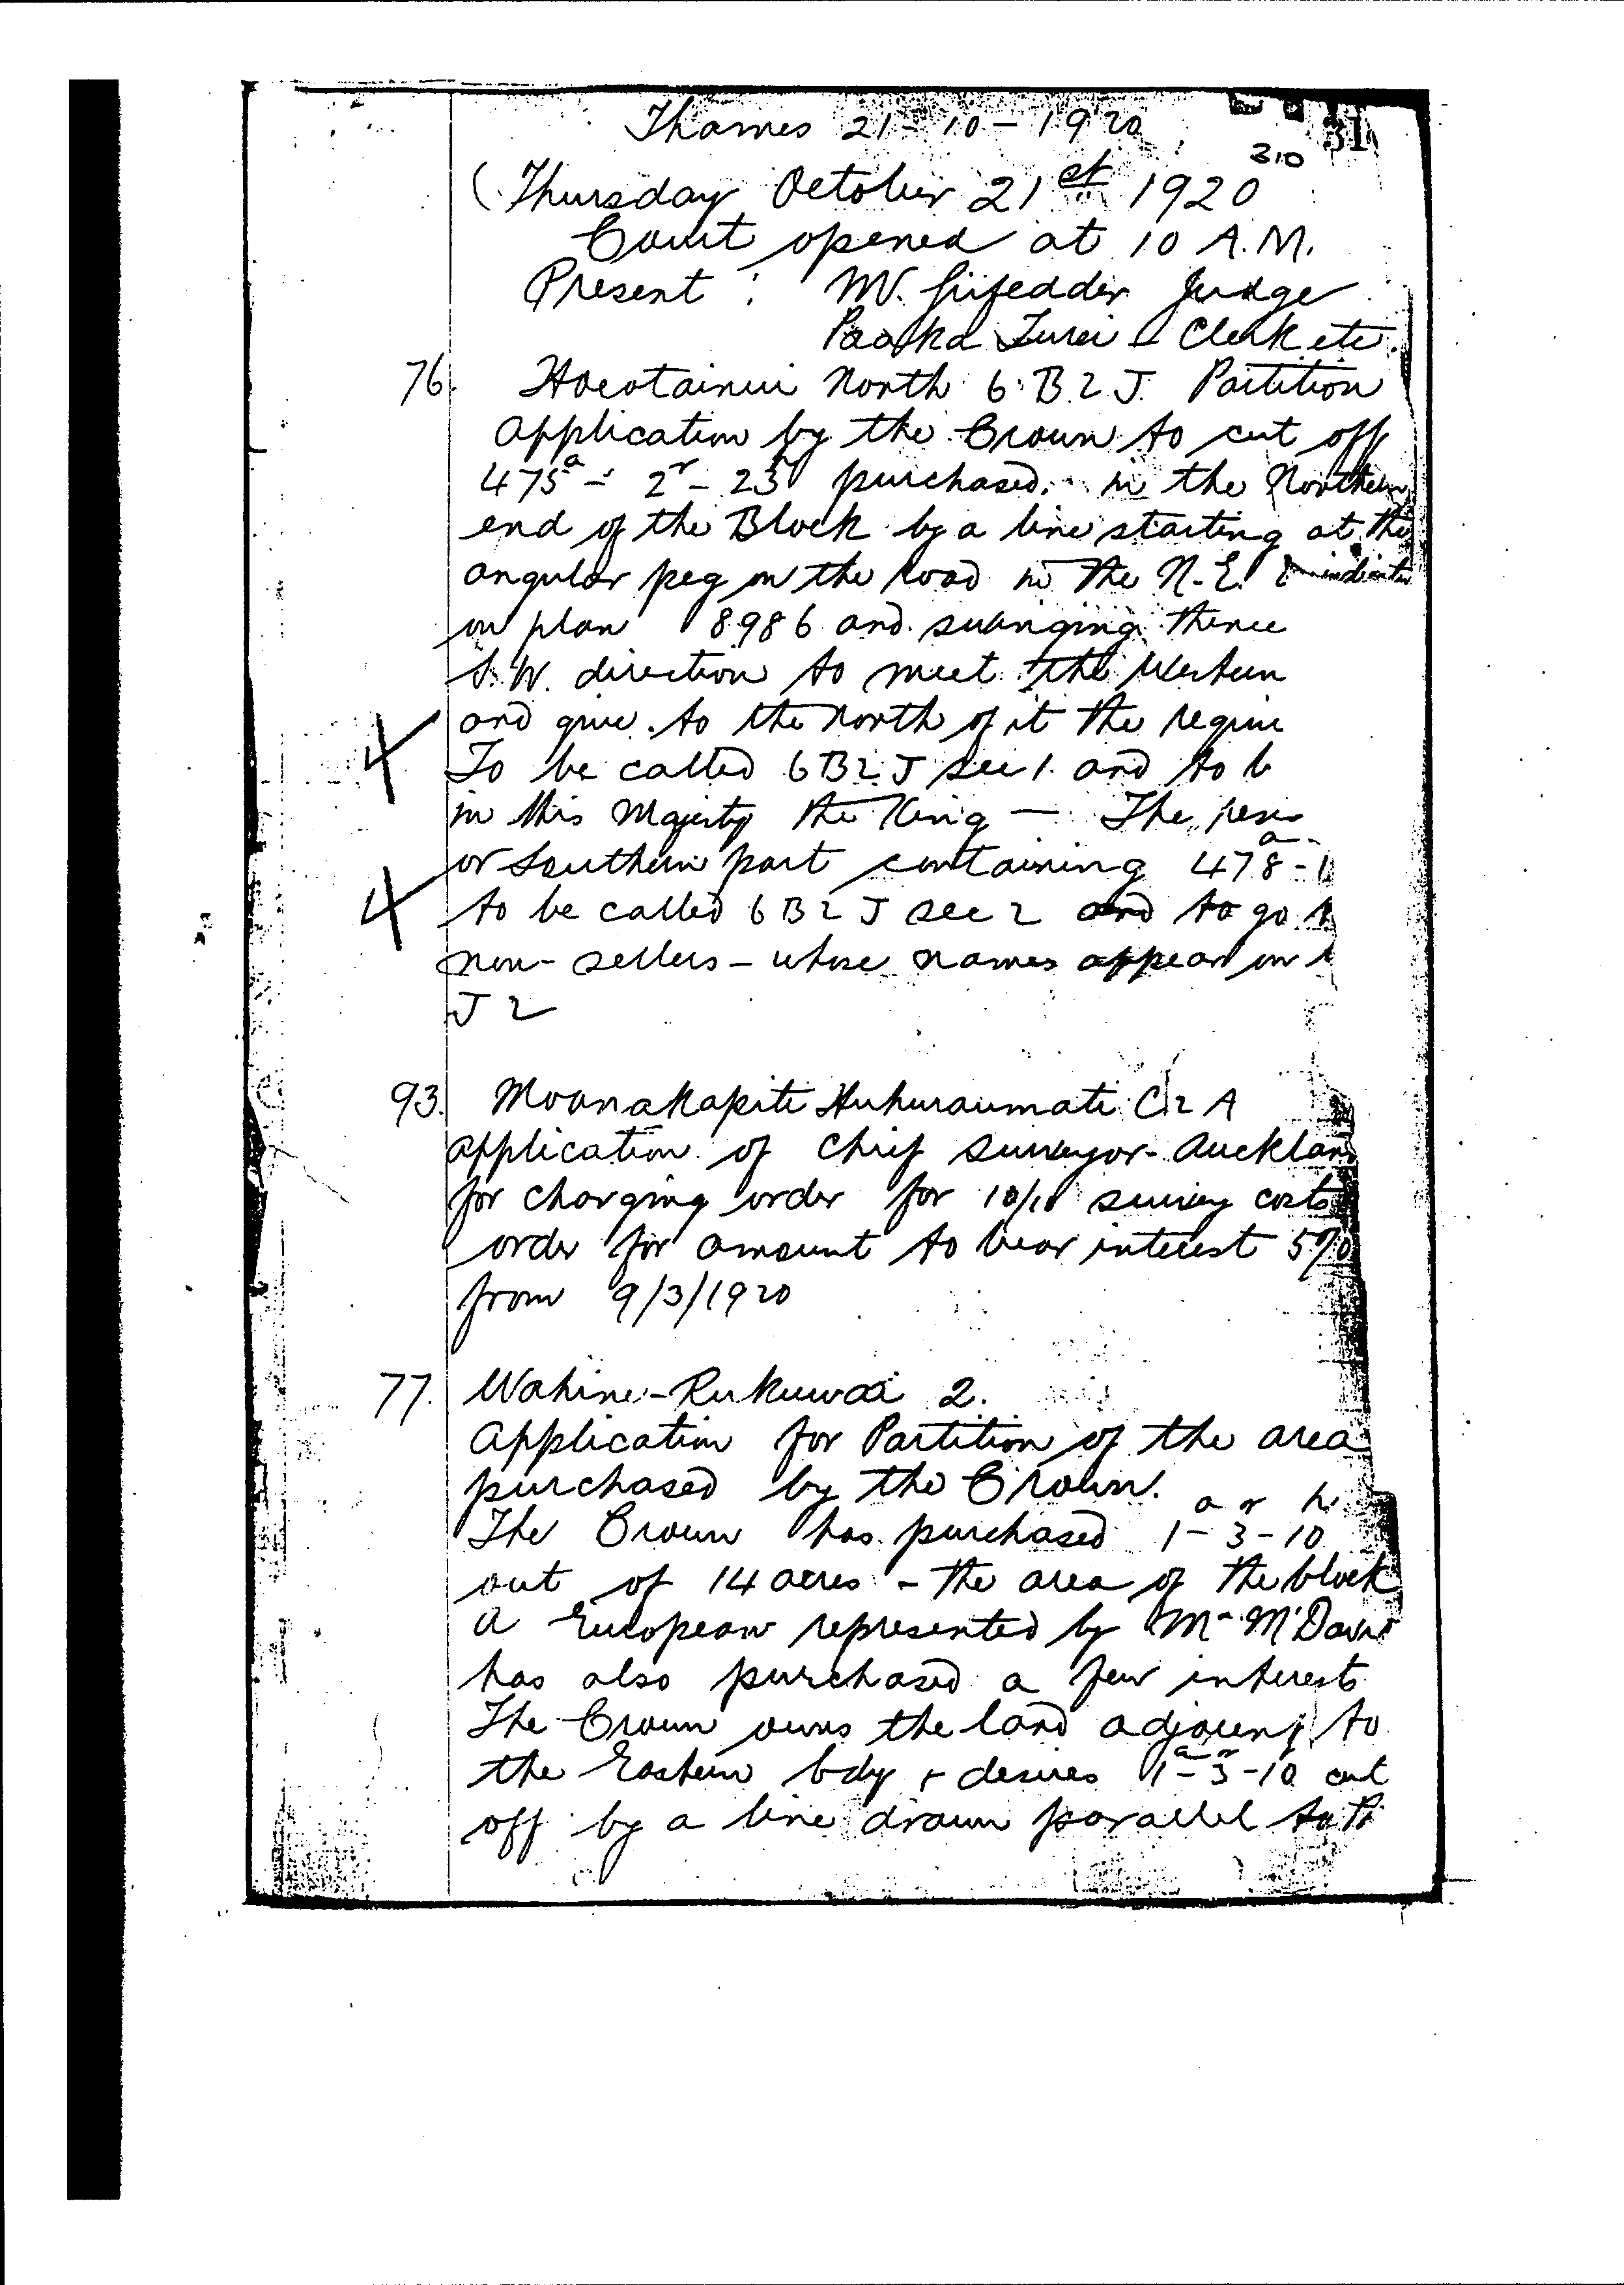 Thames 21-10-1920
310
31
(Thursday October 21st 1920
Court opened at 10 A.M.
Present : Judge
Clerk etc.
76. Hoeotainui North 6 B 2 J. Partition
application by the Crown to cut off
475a - 2r - 23 purchased. in the Northern
end of the Block by a line starting at the
angular peg on the road in the N.E.
on plan 8986 and swinging thence
S.W. direction to meet the Western
and give to the north of it the
To be called 6B2J sec 1. and to b
in His Majesty the King — The
or Southern part containing 478a - 1
to be called 6B2J sec 2 and to go
non-sellers - whose names appear on
J 2
93. Moanakapiti Huhuraumati C2A
application of Chief Surveyor - Auckland
for charging order for survey costs
order for amount to bear interest 5%
from 9/3/1920
77. Wahine-Rukuwai 2.
Application for Partition of the area
purchased by the Crown.
a r
The Crown has purchased 1-3-10
out of 14 acres - the area of the block
A European represented by Mr
has also purchased a few interests
The Crown owns the land to
the Eastern bdy + desires 1a-3r-10 cut
off by a line drawn parallel to